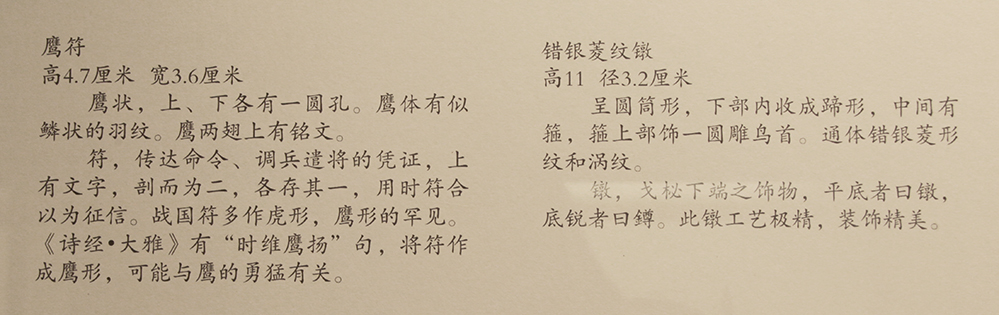 鹰符
高4.7厘米 宽3.6厘米
鹰状，上、下各有一圆孔。鹰体有似
鳞状的羽纹。鹰两翅上有铭文。
符，传达命令、调兵遣将的凭证，上
有文字，剖而为二，各存其一，用时符合
以为征信。战国符多作虎形，鹰形的罕见。
《诗经•大雅》有“时维鹰扬”句，将符作
成鹰形，可能与鹰的勇猛有关。
错银菱纹镦
高11 径3.2厘米
呈圆筒形，下部内收成蹄形，中间有
箍，箍上部饰一圆雕鸟首。通体错银菱形
纹和涡纹。
镦，戈柲下端之饰物，平底者曰镦，
底锐者曰鐏。此镦工艺极精，装饰精美。